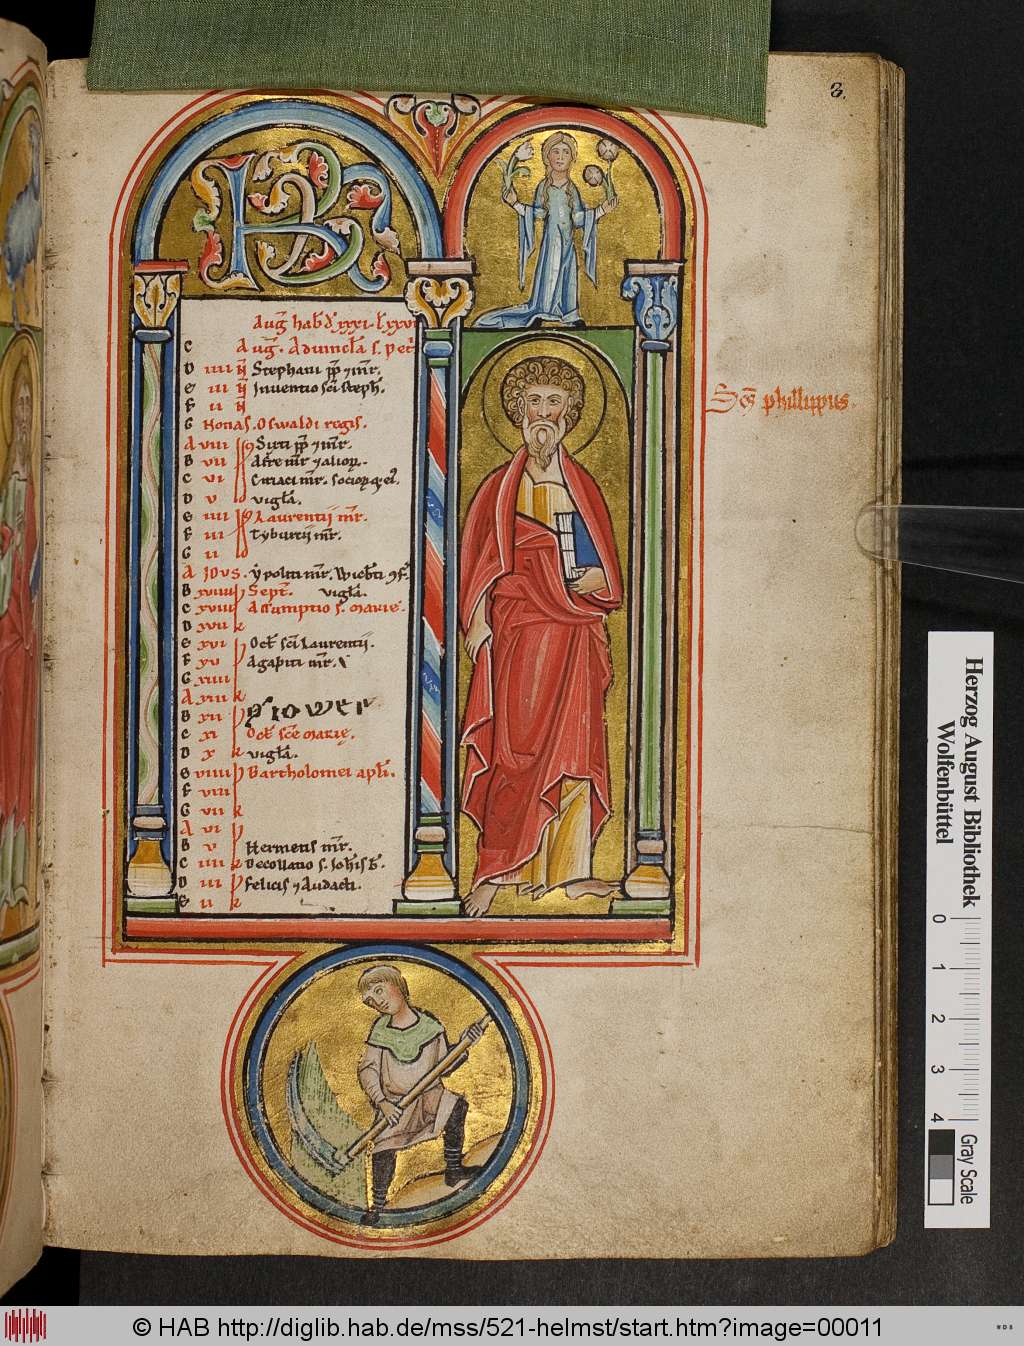 8.
KL
Augͥ habͭ dͥ xxxi. lͣ xxx
c Augͥ. Aduincl̄a s. petͥ
D iiii N̄ Stephani pp̄ ⁊ mr̄.
e iii N̄ Inuentio sc̄i steph̄.
F ii N̄
G Nonas. Oswaldi regis.
A viii Id9 Sixti pp̄ ⁊ mr̄.
B vii Afre mr̄ ⁊ alioꝝ.
C vi Ciriaci mr̄. socioꝝ q; ei9.
D v vigl̄a.
e iiii Id9 Laurentii mr̄.
F iii Tyburtii mr̄.
G ii
A IDUS. ypoliti mr̄. Wicb̄ti ↄf̄.
B xviiii Sept̄. vigl̄a.
C xviii Assumptio s. marie.
D xvii k
e xvi Oct̄ sc̄i Laurentii.
F xv Agapiti mr̄.
G xiiii
A xiii k
B xii
C xi Oct̄ sc̄e marię.
D x k vigl̄a.
e viiii Bartholomei apl̄i.
F viii
G vii k
A vi
B v Hermetis mr̄.
C iiii k Decollatio s. Ioh̄is b̄.
D iii Felicis ⁊ Audacti.
e ii k
Sc̄s phillippus.
Herzog August Bibliothek
Wolfenbüttel
0 1 2 3 4
Gray Scale
© HAB http://diglib.hab.de/mss/521-helmst/start.htm?image=00011
WDB